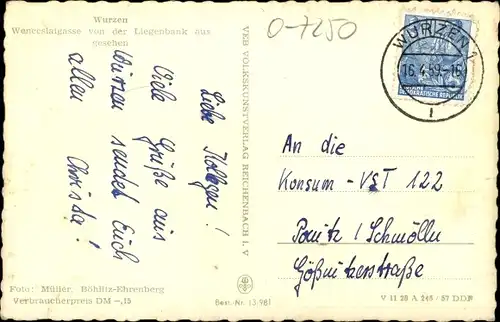 Wurzen
Wenceslatgasse von der Liegenbank aus
gesehen
O-7250
WURZEN 1
16.4.59.-16
DEMOKRATISCHE REPUBLIK
1
Liebe Kollegen!
Viele Grüße aus
Wurzen sendet Euch
allen
Christa!
VEB VOLKSKUNSTVERLAG REICHENBACH I. V
An die
Konsum-VST 122
Ponitz / Schmölln
Gößnitzerstraße
Foto: Müller, Böhlitz-Ehrenberg
Verbraucherpreis DM -,15
Best.-Nr. 13 981
V 11 28 A 245 / 57 DDR